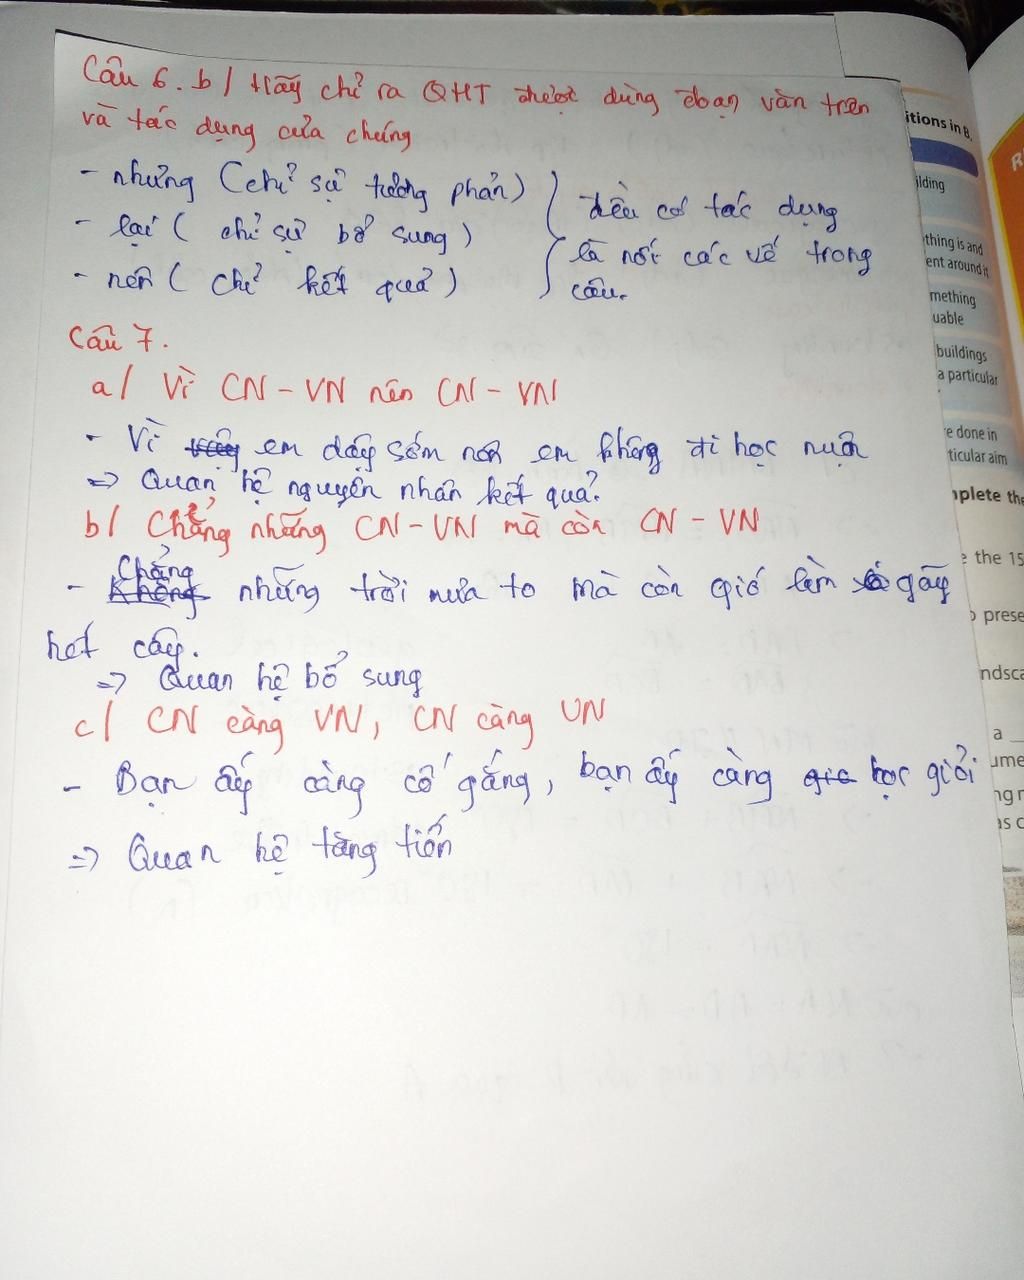 Câu 6. b/ Hãy chỉ ra QHT được dùng đoạn văn trên
và tác dụng của chúng
- nhưng (chỉ sự tương phản)
- lại ( chỉ sự bổ sung )
- nên ( chỉ kết quả )
đều có tác dụng
là nối các vế trong
câu.
Câu 7.
a/ Vì CN - VN nên CN - VN
- Vì em dậy sớm nên em không đi học muộn
=> Quan hệ nguyên nhân kết quả.
b/ Chẳng những CN - VN mà còn CN - VN
- Chẳng những trời mưa to mà còn gió làm gãy
hết cây.
=> Quan hệ bổ sung
c/ CN càng VN, CN càng VN
- Bạn ấy càng cố gắng, bạn ấy càng học giỏi
=> Quan hệ tăng tiến
itions in B.
ilding
thing is and
ent around it
mething
uable
buildings
a particular
e done in
ticular aim
mplete the
e the 15
o prese
ndsca
a
ume
ng r
as c